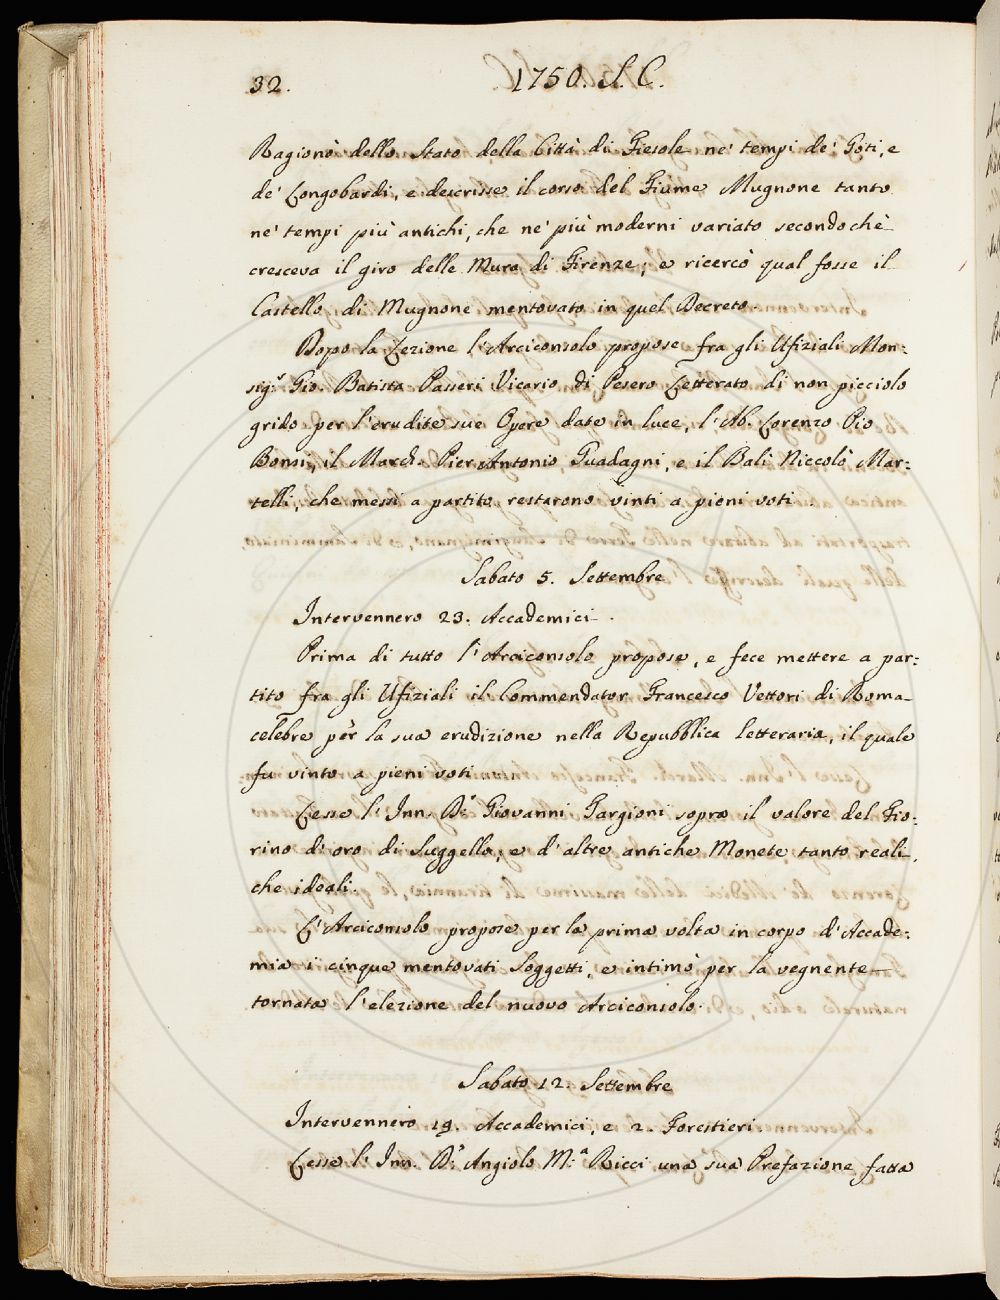 32.
1750. S. C.
Ragionò dello Stato della Città di Fiesole ne' tempi de' Goti, e
de' Longobardi, e descrisse il corso del Fiume Mugnone tanto
ne' tempi più antichi, che ne' più moderni variato secondochè
cresceva il giro delle Mura di Firenze, e ricercò qual fosse il
Castello di Mugnone mentovato in quel Decreto.
Dopo la Lezione l'Arciconsolo propose fra gli Ufiziali Mon:
sig.r Gio. Batista Passeri Vicario di Pesero Letterato di non picciolo
grido per l'erudite sue Opere date in luce, l'Ab. Lorenzo Pio
Bonsi, il March. Pier Antonio Guadagni, e il Balì Niccolò Mar:
telli, che messi a partito restarono vinti a pieni voti.
Sabato 5. Settembre
Intervennero 23. Accademici.
Prima di tutto l'Arciconsolo propose, e fece mettere a par:
tito fra gli Ufiziali il Commendator Francesco Vettori di Roma
celebre per la sua erudizione nella Repubblica letteraria, il quale
fu vinto a pieni voti.
Lesse l'Inn. D.r Giovanni Targioni sopra il valore del Fio:
rino d'oro di Suggello, e d'altre antiche Monete tanto reali,
che ideali.
L'Arciconsolo propose per la prima volta in corpo d'Accade:
mia i cinque mentovati Soggetti, e intimò per la vegnente
tornata l'elezione del nuovo Arciconsolo.
Sabato 12. Settembre
Intervennero 19. Accademici, e 2. Forestieri.
Lesse l'Inn. D.r Angiolo M.a Ricci una sua Prefazione fatta